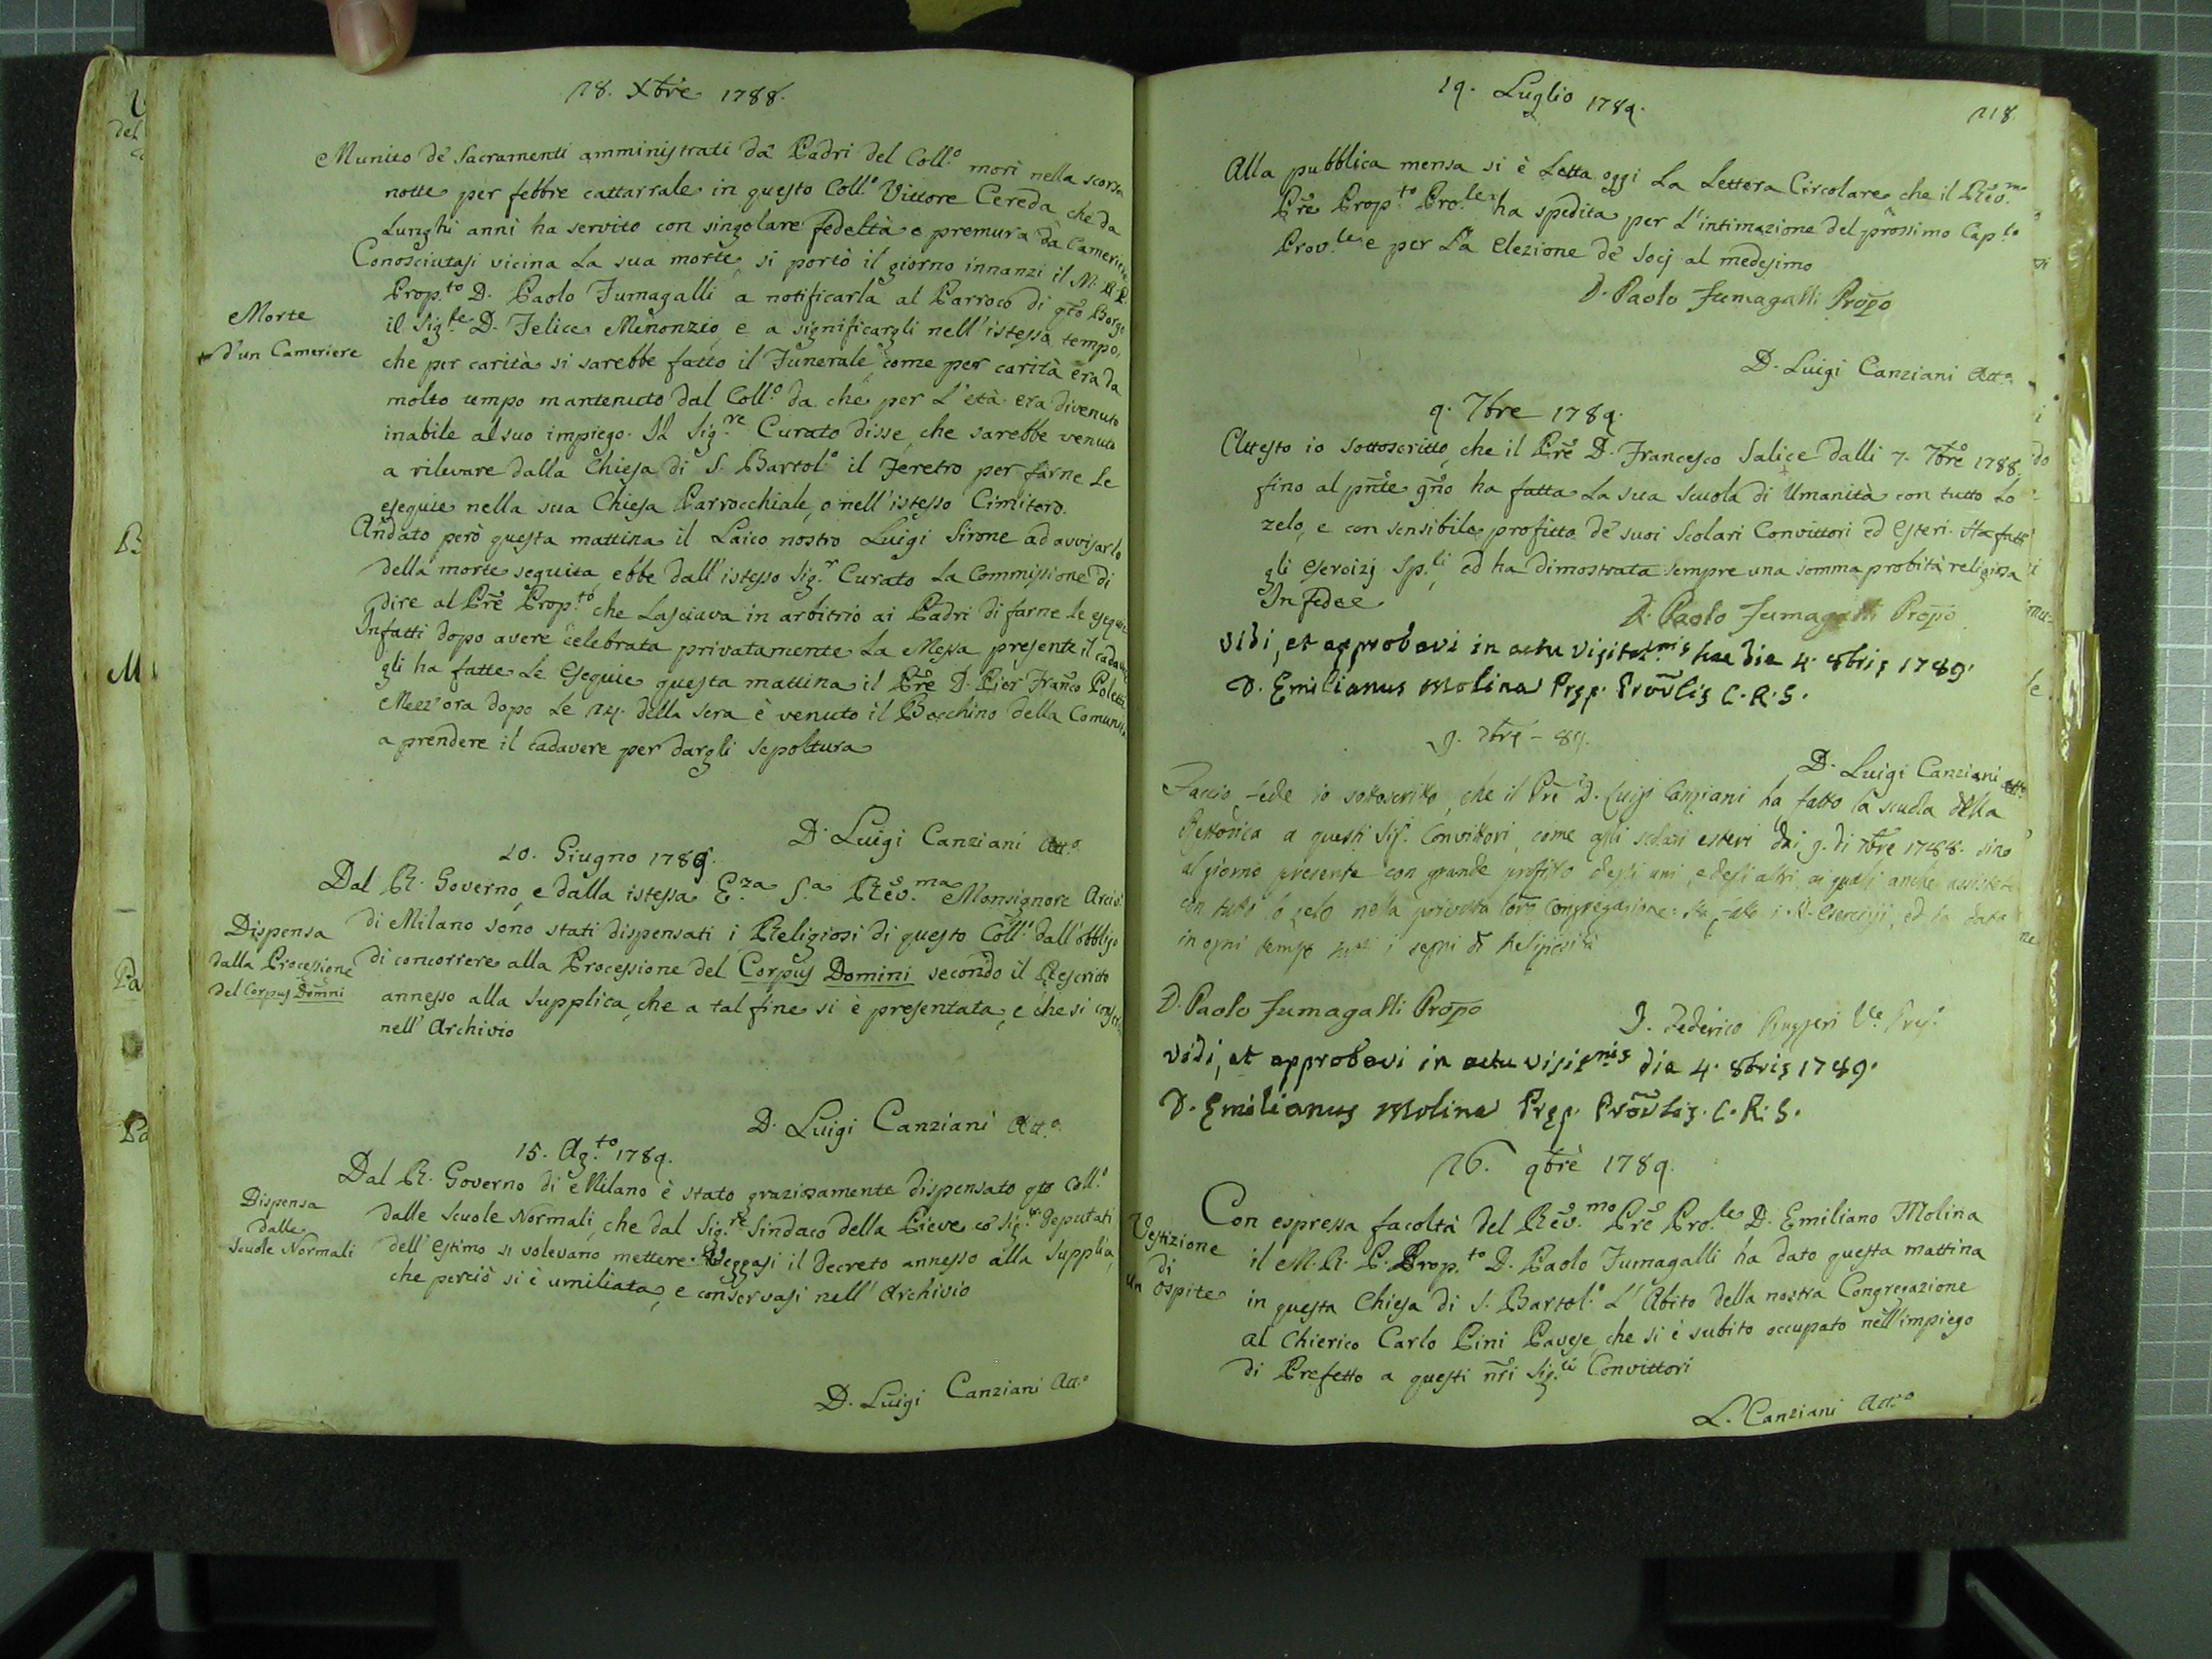 28. Xbre 1788.
Munito de' Sacramenti amministrati da' Padri del Coll.o morì nella scorsa
notte per febbre cattarrale in questo Coll.o Vittore Cereda che da
Lunghi anni ha servito con singolare fedeltà e premura da Cameriere
Conosciutasi vicina La sua morte, si portò il giorno innanzi il M. R. P.
Prop.to D. Paolo Fumagalli a notificarla al Parroco di qto Borgo
il Sig.re D. Felice Minonzio, e a significargli nell'istesso tempo,
Morte
d'un Cameriere
che per carità si sarebbe fatto il Funerale, come per carità era da
molto tempo mantenuto dal Coll.o da che per L'età era divenuto
inabile al suo impiego. Il Sig.re Curato disse, che sarebbe venuto
a rilevare dalla Chiesa di S. Bartol.o il Feretro per farne Le
esequie nella sua Chiesa Parrocchiale, o nell'istesso Cimitero.
Andato però questa mattina il Laico nostro Luigi Sirone ad avvisarlo
della morte seguita ebbe dall'istesso Sig.r Curato La Commissione di
dire al Pre Prop.to che Lasciava in arbitrio ai Padri di farne le esequie
Infatti dopo avere celebrata privatamente La Messa presente il cadavere
gli ha fatte Le Esequie questa mattina il Pre D. Pier Franco Poletti
Mezz'ora dopo Le 24. della sera è venuto il Becchino della Comunità
a prendere il cadavere per dargli sepoltura
D. Luigi Canziani Att.o
10. Giugno 1789.
Dal R. Governo, e dalla istessa E.za S.a Rev.ma Monsignore Arciv.
Dispensa
dalla Processione
del Corpus Domni
di Milano sono stati dispensati i Religiosi di questo Coll.o dall'obbligo
di concorrere alla Processione del Corpus Domini secondo il Rescritto
annesso alla Supplica, che a tal fine si è presentata, e che si conserva
nell'Archivio
D. Luigi Canziani Att.o
15. Ag.to 1789.
Dal R. Governo di Milano è stato graziosamente dispensato qto Coll.o
Dispensa
dalle
Scuole Normali
dalle Scuole Normali, che dal Sig.re Sindaco della Pieve co' Sig.ri Deputati
dell'Estimo si volevano mettere. Veggasi il Decreto annesso alla Supplica,
che perciò si è umiliata, e conservasi nell'Archivio
D. Luigi Canziani Att.o
19. Luglio 1789.
218
Alla pubblica mensa si è Letta oggi La Lettera Circolare che il Rev.mo
Pre Prop.to Pro.le ha spedita per L'intimazione del prossimo Cap.lo
Prov.le e per La Elezione de' Socj al medesimo
D. Paolo Fumagalli Propo
D. Luigi Canziani Att.o
9. 7bre 1789.
Attesto io sottoscritto, che il Pre D. Francesco Salice dalli 7. 7bre 1788,
fino al pnte gno ha fatta La sua scuola di Umanità con tutto Lo
zelo, e con sensibile profitto de' suoi Scolari Convittori ed Esteri. Ha fatti
gli Esercizj Sp.li, ed ha dimostrata sempre una somma probità religiosa
In fede
D. Paolo Fumagalli Propo
Vidi, et approbavi in actu visit.nis hac die 4. 8bris 1789.
D. Emilianus Molina Prep. Provlis C. R. S.
9. 7bre - 89.
D. Luigi Canziani Att.o
Faccio fede io sottoscritto, che il Pre D. Luigi Canziani ha fatto la scuola della
Rettorica a questi Sig.i Convittori, come agli scolari esteri dai 9. di 7bre 1788. sino
al giorno presente con grande profitto degli uni, e degli altri, ai quali anche
con tutto lo zelo nella privata loro Congregazione: Ha fatto i S. Esercizj, ed ha dato
in ogni tempo tutti i segni di Religiosità
D. Paolo Fumagalli Propo
D. Federico Ruggeri V.e Prep.
vidi, et approbavi in actu visit.nis die 4. 8bris 1789.
D. Emilianus Molina Prep. Provlis. C. R. S.
26. 9bre 1789.
Vestizione
di
un Ospite
Con espressa facoltà del Rev.mo Pre Pro.le D. Emiliano Molina
il M. R. P. Prop.to D. Paolo Fumagalli ha dato questa mattina
in questa Chiesa di S. Bartol.o L'Abito della nostra Congregazione
al Chierico Carlo Pini Pavese, che si è subito occupato nell'impiego
di Prefetto a questi nri Sig.ri Convittori
L. Canziani Att.o